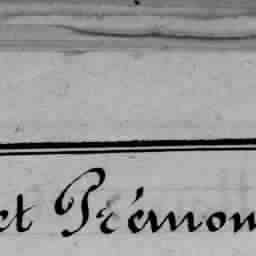 et Prémon